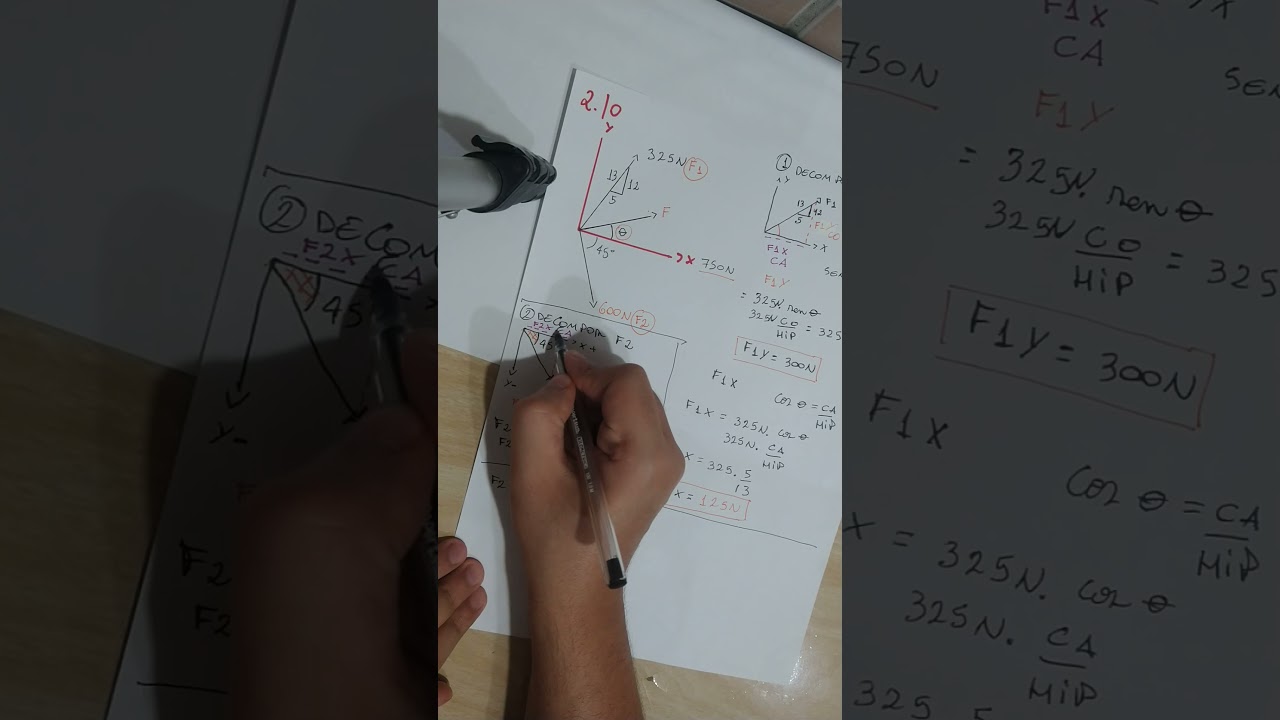 2.10
Y
325N F1
13
12
5
F
θ
45°
X 750N
600N F2
① DECOMPOR
Y
13
12
5
F1
X
F1X
CA
F1Y
= 325N. sen θ
325N CO/HiP = 325
F1Y = 300N
F1X
cos θ = CA/HiP
F1X = 325N. cos θ
325N. CA/HiP
X = 325. 5/13
X = 125N
② DECOMPOR F2
F2X CA
45
X+
Y-
F2
F2
F2